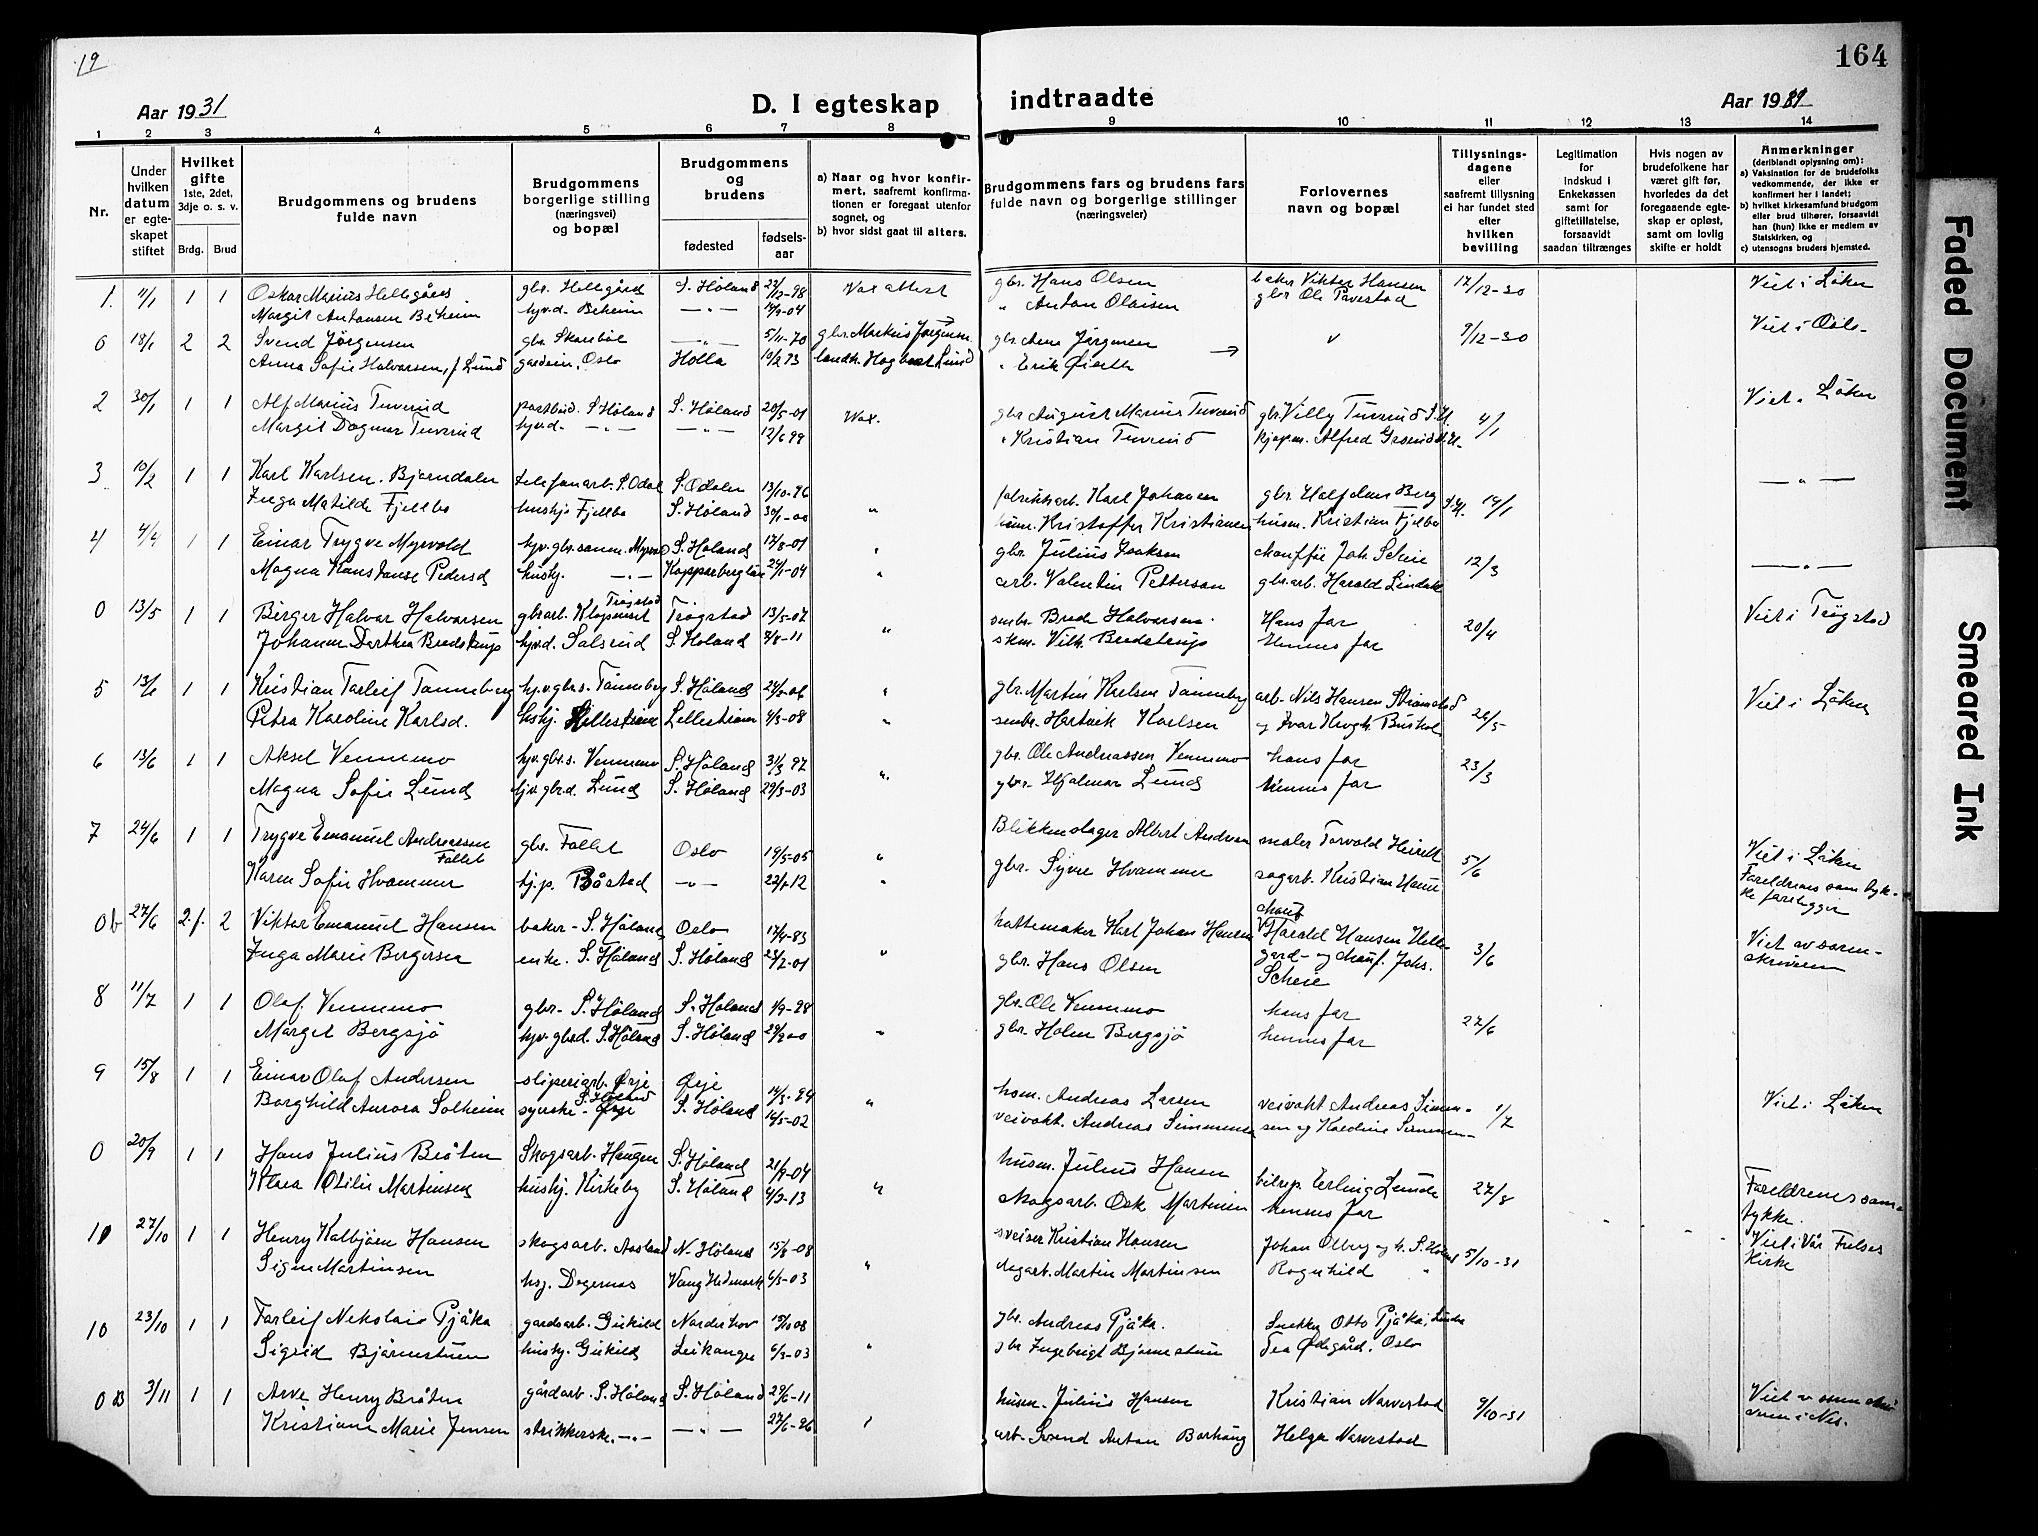 19
164
Aar 1931
D. I egteskap
indtraadte
Aar 19
1 2 3 4 5 6 7 8 9 10 11 12 13 14
Nr.
Under hvilken datum er egteskapet stiftet
Hvilket gifte
1ste, 2det, 3dje o. s. v.
Brdg. Brud
Brudgommens og brudens fulde navn
Brudgommens borgerlige stilling (næringsvei) og bopæl
Brudgommens og brudens
fødested fødselsaar
a) Naar og hvor konfirmert, saafremt konfirmationen er foregaat utenfor sognet, og
b) hvor sidst gaat til alters.
Brudgommens fars og brudens fars fulde navn og borgerlige stillinger (næringsveier)
Forlovernes navn og bopæl
Tillysningsdagene eller saafremt tillysning ei har fundet sted efter hvilken bevilling
Legitimation for Indskud i Enkekassen samt for giftetillatelse, forsaavidt saadan tiltrænges
Hvis nogen av brudefolkene har været gift før, hvorledes da det foregaaende egteskap er opløst, samt om lovlig skifte er holdt
Anmerkninger
(deriblandt oplysning om):
a) Vaksination for de brudefolks vedkommende, der ikke er konfirmert her i landet;
b) hvilket kirkesamfund brudgom eller brud tilhører, forsaavidt han (hun) ikke er medlem av Statskirken, og
c) utensogns bruders hjemsted.
1. 1 1 Oskar Marius Hellegård gbr. Hellegård S. Høland 27/12-98 Vax attest gbr. Hans Olsen baker Viktor Hansen 17/12-30 Viet i Løken
Margit Antonsen Beheim hjv.d. Beheim —„— „ Anton Olaisen gbr Ole
0 18/1 2 2 Svend Jørgensen gbr. —„— 5/11-70 gbr. Markus Jørgensen gbr. Arne Jørgensen 9/12-30 Viet i Oslo
Anna Sofie Halvorsen, f. Lund Oslo Holla 19/2 73 Lund „ Erik
2 30/1 1 1 Alf Marius Tuverud postbud. S. Høland S. Høland 20/5-01 Vax. gbr August Marius Tuverud gbr. Villy Tuverud S.H. 4/1 Viet i Løken
Margit Dagmar Tuverud hjvd. —„— —„— 12/6 99 „ Kristian Tuverud kjøpm. Alfred
3 10/2 1 1 Karl Karlsen Bjørndalen telefonarb. S. Odal S. Odalen 13/10-96 fabrikkarb. Karl Johansen gbr. Halfdan Berg 19/1 —„—
Inga Matilde Fjellbo hushj. Fjellbo S. Høland 30/1-00 „ husm. Kristoffer Kristiansen husm. Kristian Fjelbo
4 4/4 1 1 Einar Trygve Myrvold hjv. gbr. sønn. S. Høland 17/8-01 „ gbr. Julius Isaksen chauffør Joh. Scheie 12/3 —„—
Magna Konstanse Pedersd hushj. —„— Kopparberg län 29/1-04 „ arb. Valentin Petterson gbr.arb. Harald
0 13/5 1 1 Birger Halvor Halvorsen gbrarb. Trøgstad Trøgstad 13/5-07 smbr. Brede Halvorsen Hans far 20/4 Viet i Trøgstad
Johanne Dorthea Bredstrup hjv.d. Salsrud S. Høland 4/8-11 „ skm. Vilh. Bredstrup Hennes far
5 13/6 1 1 Kristian Tarleif Tanneberg hjv. gbr.s. Tanneberg S. Høland „ gbr. Martin Karlsen Tanneberg arb. Nils Hansen 26/5 Viet i Løken
Petra Karoline Karlsd. hshj. Lillestrøm Lillestrøm 4/3-08 „ smbr. Hartvik Karlsen og Ivar Krogh
6 13/6 1 1 Aksel Vennemo hjv. gbr.s. Vennemo S. Høland 31/3 97 „ gbr. Ole Andreassen Vennemo hans far 23/3
Magna Sofie Lund hjv. gbrd. Lund S. Høland 29/3-03 gbr. Hjalmar Lund hennes far
7 24/6 1 1 Trygve Emanuel Andreassen Follet gbr. Follet Oslo 19/5-05 „ Blikkenslager Albert Andreas maler Torvald 5/6 Viet i Løken
Karen Sofie Hvammer hj.p. Båstad —„— „ gbr. Syver Hvammer sagarb. Kristian Foreldrenes samtykke foreligger
0b 27/6 2.f. 2 Viktor Emanuel Hansen baker - S. Høland Oslo 17/4-83 hattemaker Karl Johan Hansen chauf. Harald Hansen Hellegard og chauf. Johs. Scheie 3/6 Viet av sorenskriveren
Inga Marie Bergersen enke. S. Høland S. Høland 23/2-01 „ gbr. Hans Olsen
8 11/7 1 1 Olaf Vennemo gbr. S. Høland S. Høland 1/9-28 gbr. Ole Vennemo hans far 27/6
Margit Bergsjø hjv. gbrd. S. Høland S. Høland „ gbr. Holm Bergsjø hennes far
9 15/8 1 1 Einar Olaf Andersen sliperiarb. Ørje Ørje 14/3-94 hsm. Andreas Larsen veivokt Andreas Simensen og Karoline Simensen 1/7 Viet i Løken
Borghild Aurora Solheim syerske - S. Høland S. Høland 16/5-02 „ veivokt. Andreas Simensen
0 20/9 1 1 Hans Julius Bråten Skogsarb. Haugen S. Høland 21/9-04 husm. Julius Hansen bilrep. Erling Lunde 27/8 Foreldrenes samtykke.
Klara Otilie Martinsen hushj. Kirkeby S. Høland 4/9-13 „ skogsarb. Osk. Martinsen hennes far
10 27/10 1 1 Henry Kolbjørn Hansen skogsarb. Aasland N. Høland 15/8-08 sveiser Kristian Hansen Johan Olberg og h. S. Høland 5/10-31 Viet i Vår Frelses Kirke
Signe Martinsen hsj. Dagernes Vang Hedmark 6/3-03 „ dagarb. Martin Martinsen Ragnhild „
10 23/10 1 1 Tarleif Nikolai Pjåka gardsarb. Gukild Norderhov gbr. Andreas Pjåka. Snekker Otto Pjåka
Sigrid Bjørnstuen hushj. Gukild Leikanger 6/3-03 „ gbr Ingebrigt Bjørnstuen Tea Ødegård, Oslo
0B 3/11 1 1 Arve Henry Bråten gårdarb. S. Høland S. Høland 29/6-11 husm. Julius Hansen Kristian Narvestad 9/10-31 Viet av sorenskriveren i Nes.
Kristiane Marie Jensen strikkerske. —„— —„— 27/6-96 arb. Svend Anton Borhaug Helga Narvestad
Faded Document
Smeared Ink